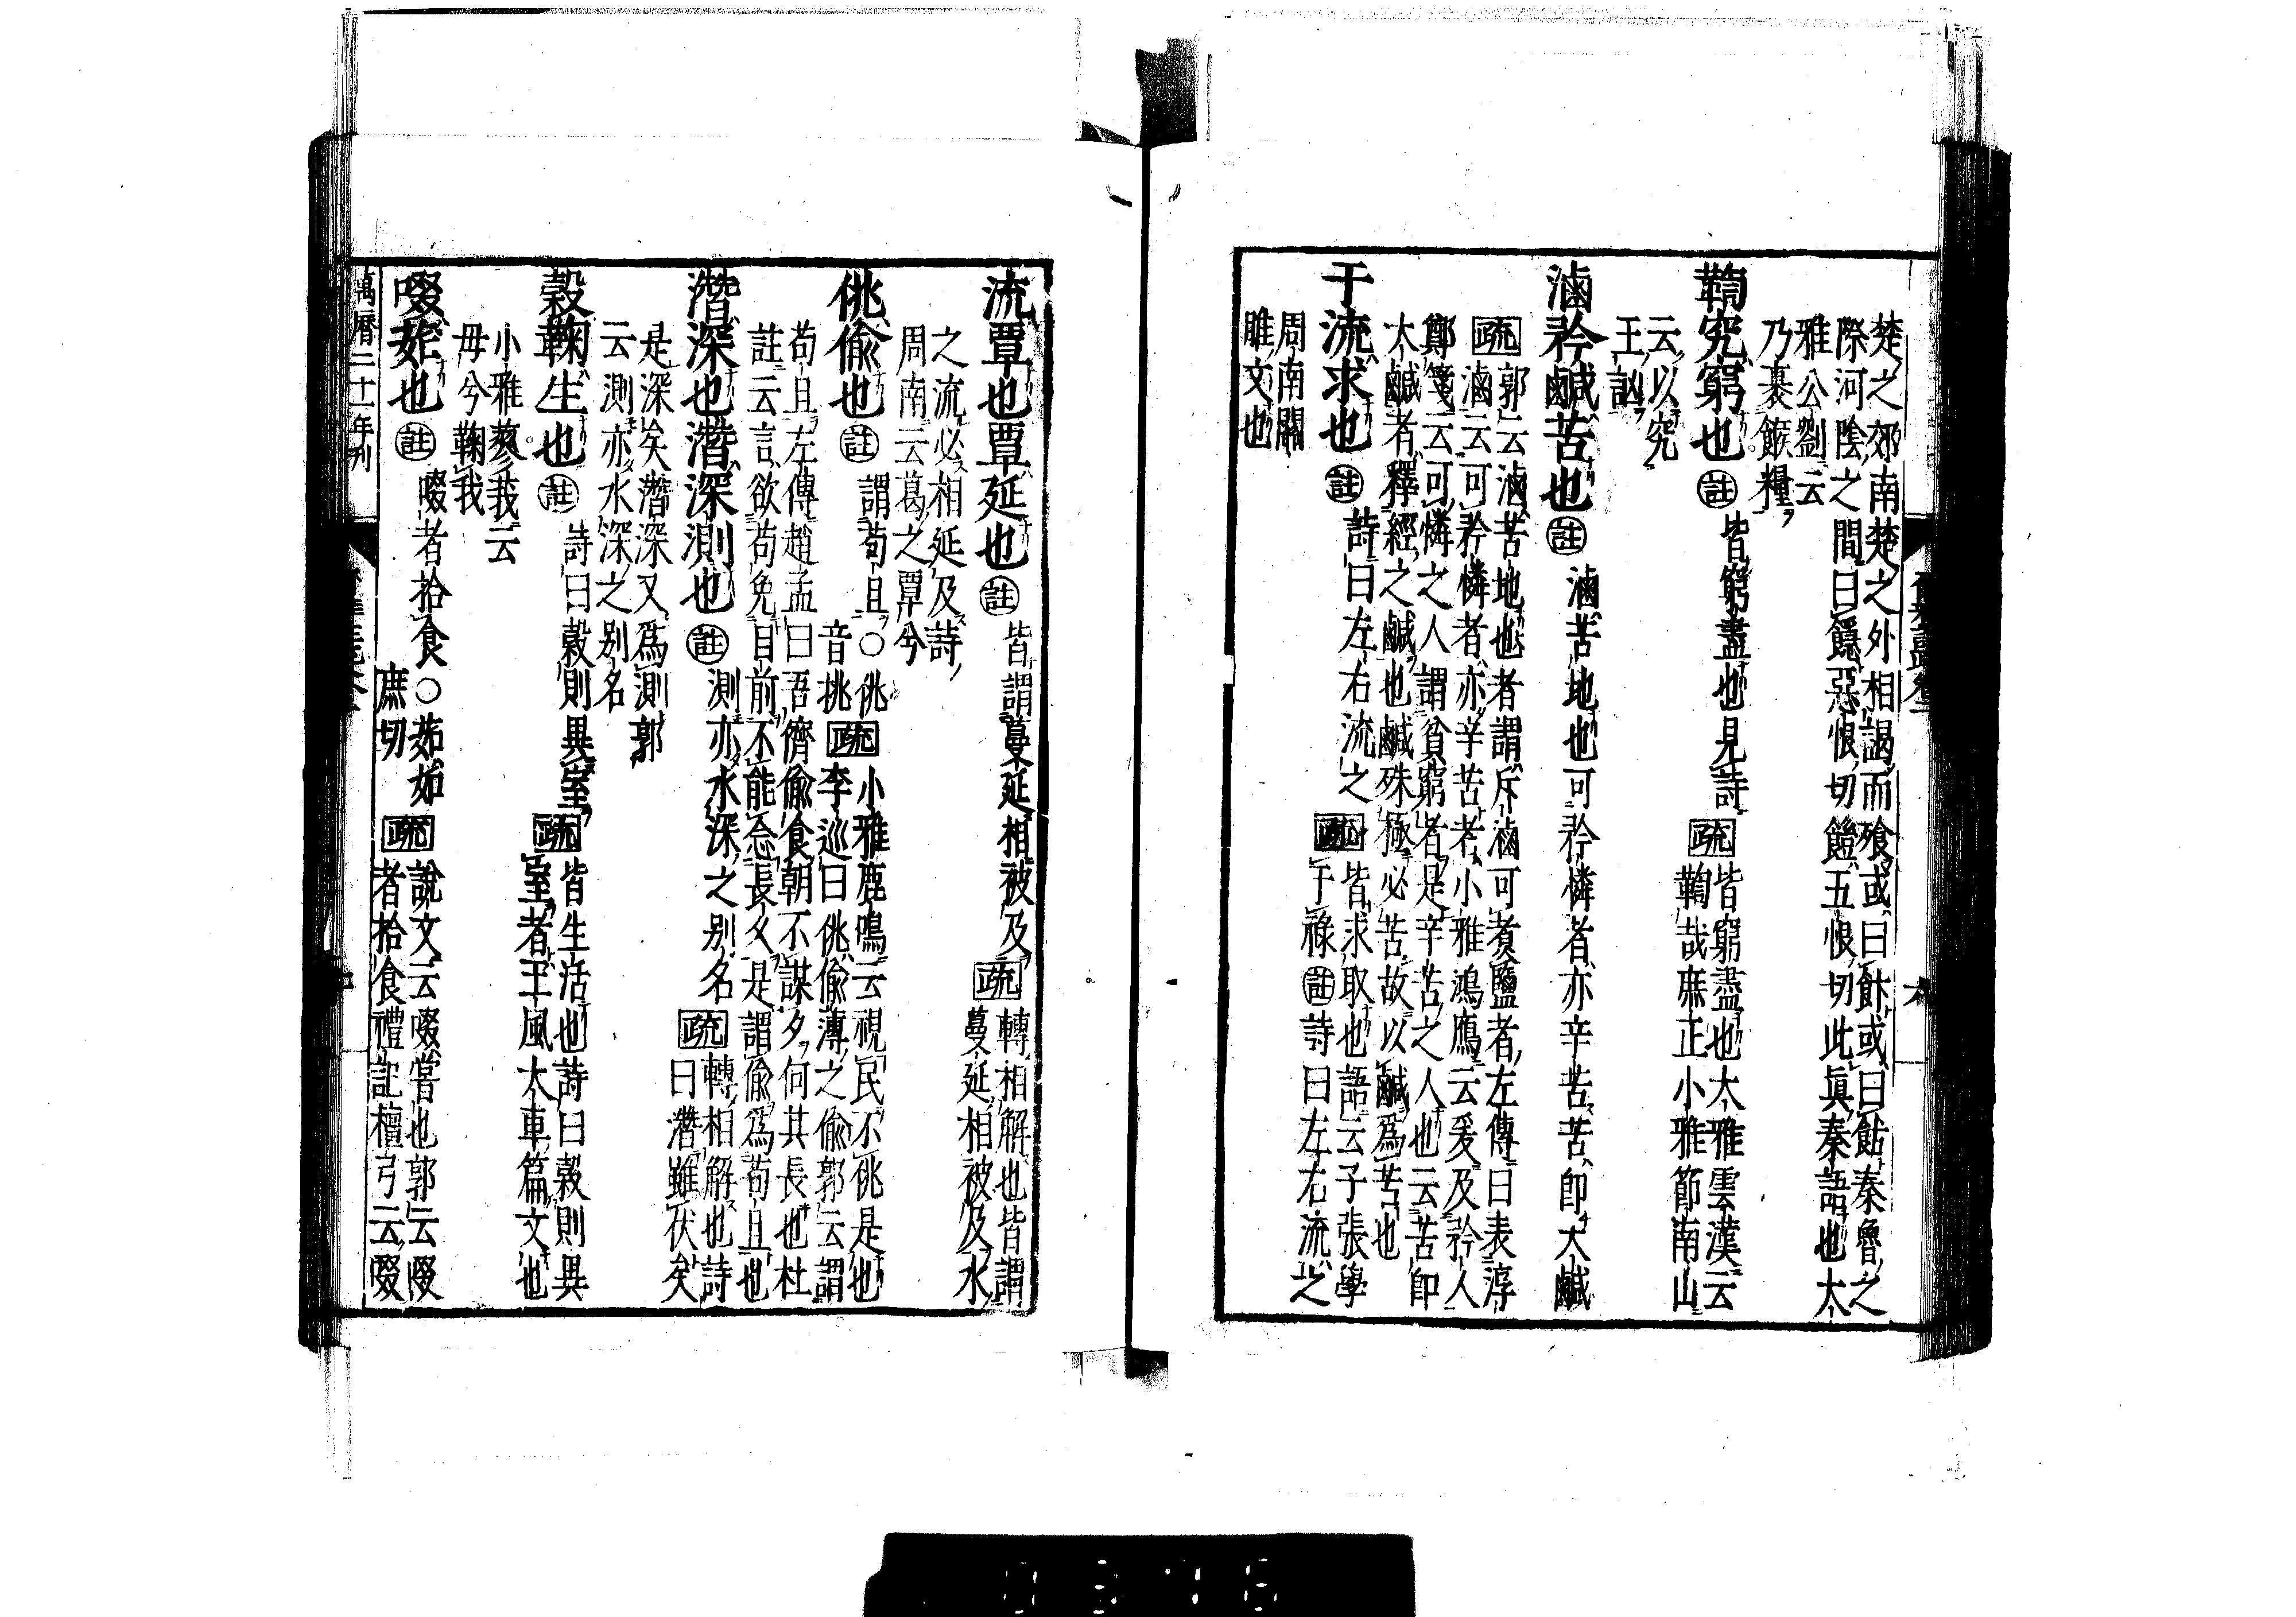 楚之郊南楚之外相謁而飱或曰飵或曰䬯秦魯之
際河陰之間曰䭡惡恨切䭓五恨切此眞秦語也太
雅公劉云
乃裹餱糧
鞫究窮也註皆窮盡也見詩疏皆窮盡也太雅雲漢云
鞫哉庶正小雅節南山
云以究
王訩
滷矜鹹苦也註滷苦地也可矜憐者亦辛苦苦即大鹹
疏郭云滷苦地也者謂斥滷可煑鹽者左傳曰表淳
滷云可矜憐者亦辛苦者小雅鴻鴈云爰及矜人
鄭箋云可憐之人謂貧窮者是辛苦之人也云苦即
太鹹者釋經之鹹也鹹殊極必苦故以鹹爲苦也
干流求也註詩曰左右流之疏皆求取也語云子張學
干祿註詩曰左右流之
周南關
雎文也
流覃也覃延也註皆謂蔓延相被及疏轉相解也皆謂
蔓延相被及水
之流必相延及詩
周南云葛之覃兮
佻偷也註謂苟且○佻
音挑疏小雅鹿鳴云視民不佻是也
李巡曰佻偷薄之偷郭云謂
苟且左傳趙孟曰吾儕偷食朝不謀夕何其長也杜
註云言欲苟免目前不能念長久是謂偷爲苟且也
潛深也潛深測也註測亦水深之别名疏轉相解也詩
曰潛雖伏矣
是深矣潛深又爲測郭
云測亦水深之别名
穀鞠生也註詩曰穀則異室疏皆生活也詩曰穀則異
室者王風大車篇文也
小雅蓼莪云
母兮鞠我
啜茹也註啜者拾食○茹茹
庶切疏說文云啜嘗也郭云啜
者拾食禮記檀弓云啜
萬曆二十一年刊
六